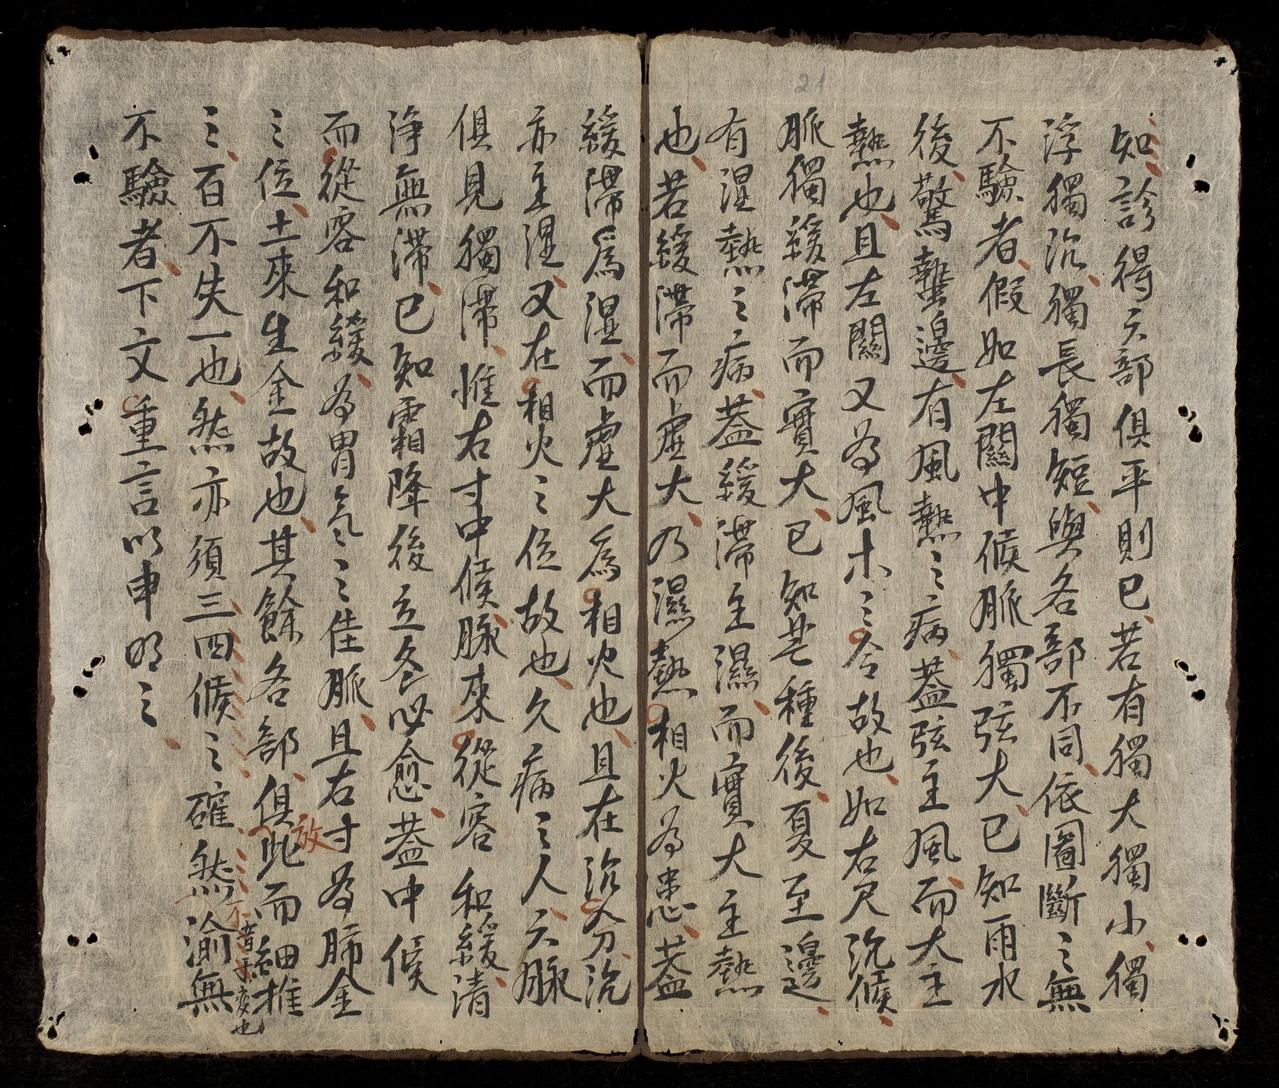 21
知、診得六部俱平則已、若有獨大獨小、獨
浮獨沉、獨長獨短、與各部不同、依圖斷之無
不驗者、假如左關中候脈獨弦大、已知雨水
後、驚蟄邊、有風熱之病、蓋弦主風、而大主
熱也、且左關又為風木之令故也、如右尺沉候、
脈獨緩滯而實大、已知芒種後、夏至邊、
有湿熱之病、蓋緩滯主濕、而實大主熱
也、若緩滯而虛大、乃濕熱相火為患、蓋
緩滯爲湿、而虛大爲相火也、且在沉分、沉
亦主湿、又在相火之位故也、久病之人、六脉
俱見獨滯、惟右寸中候、脉來從容和緩、清
淨無滯、已知霜降後立冬必愈、蓋中候
而從容和緩、為胃氣之佳脈、且右寸為肺金
之位、土來生金故也、其餘各部、俱
此而細推
放
之、百不失一也、然亦須三四候之確然渝無
不
變也
不驗者、下文重言以申明之、